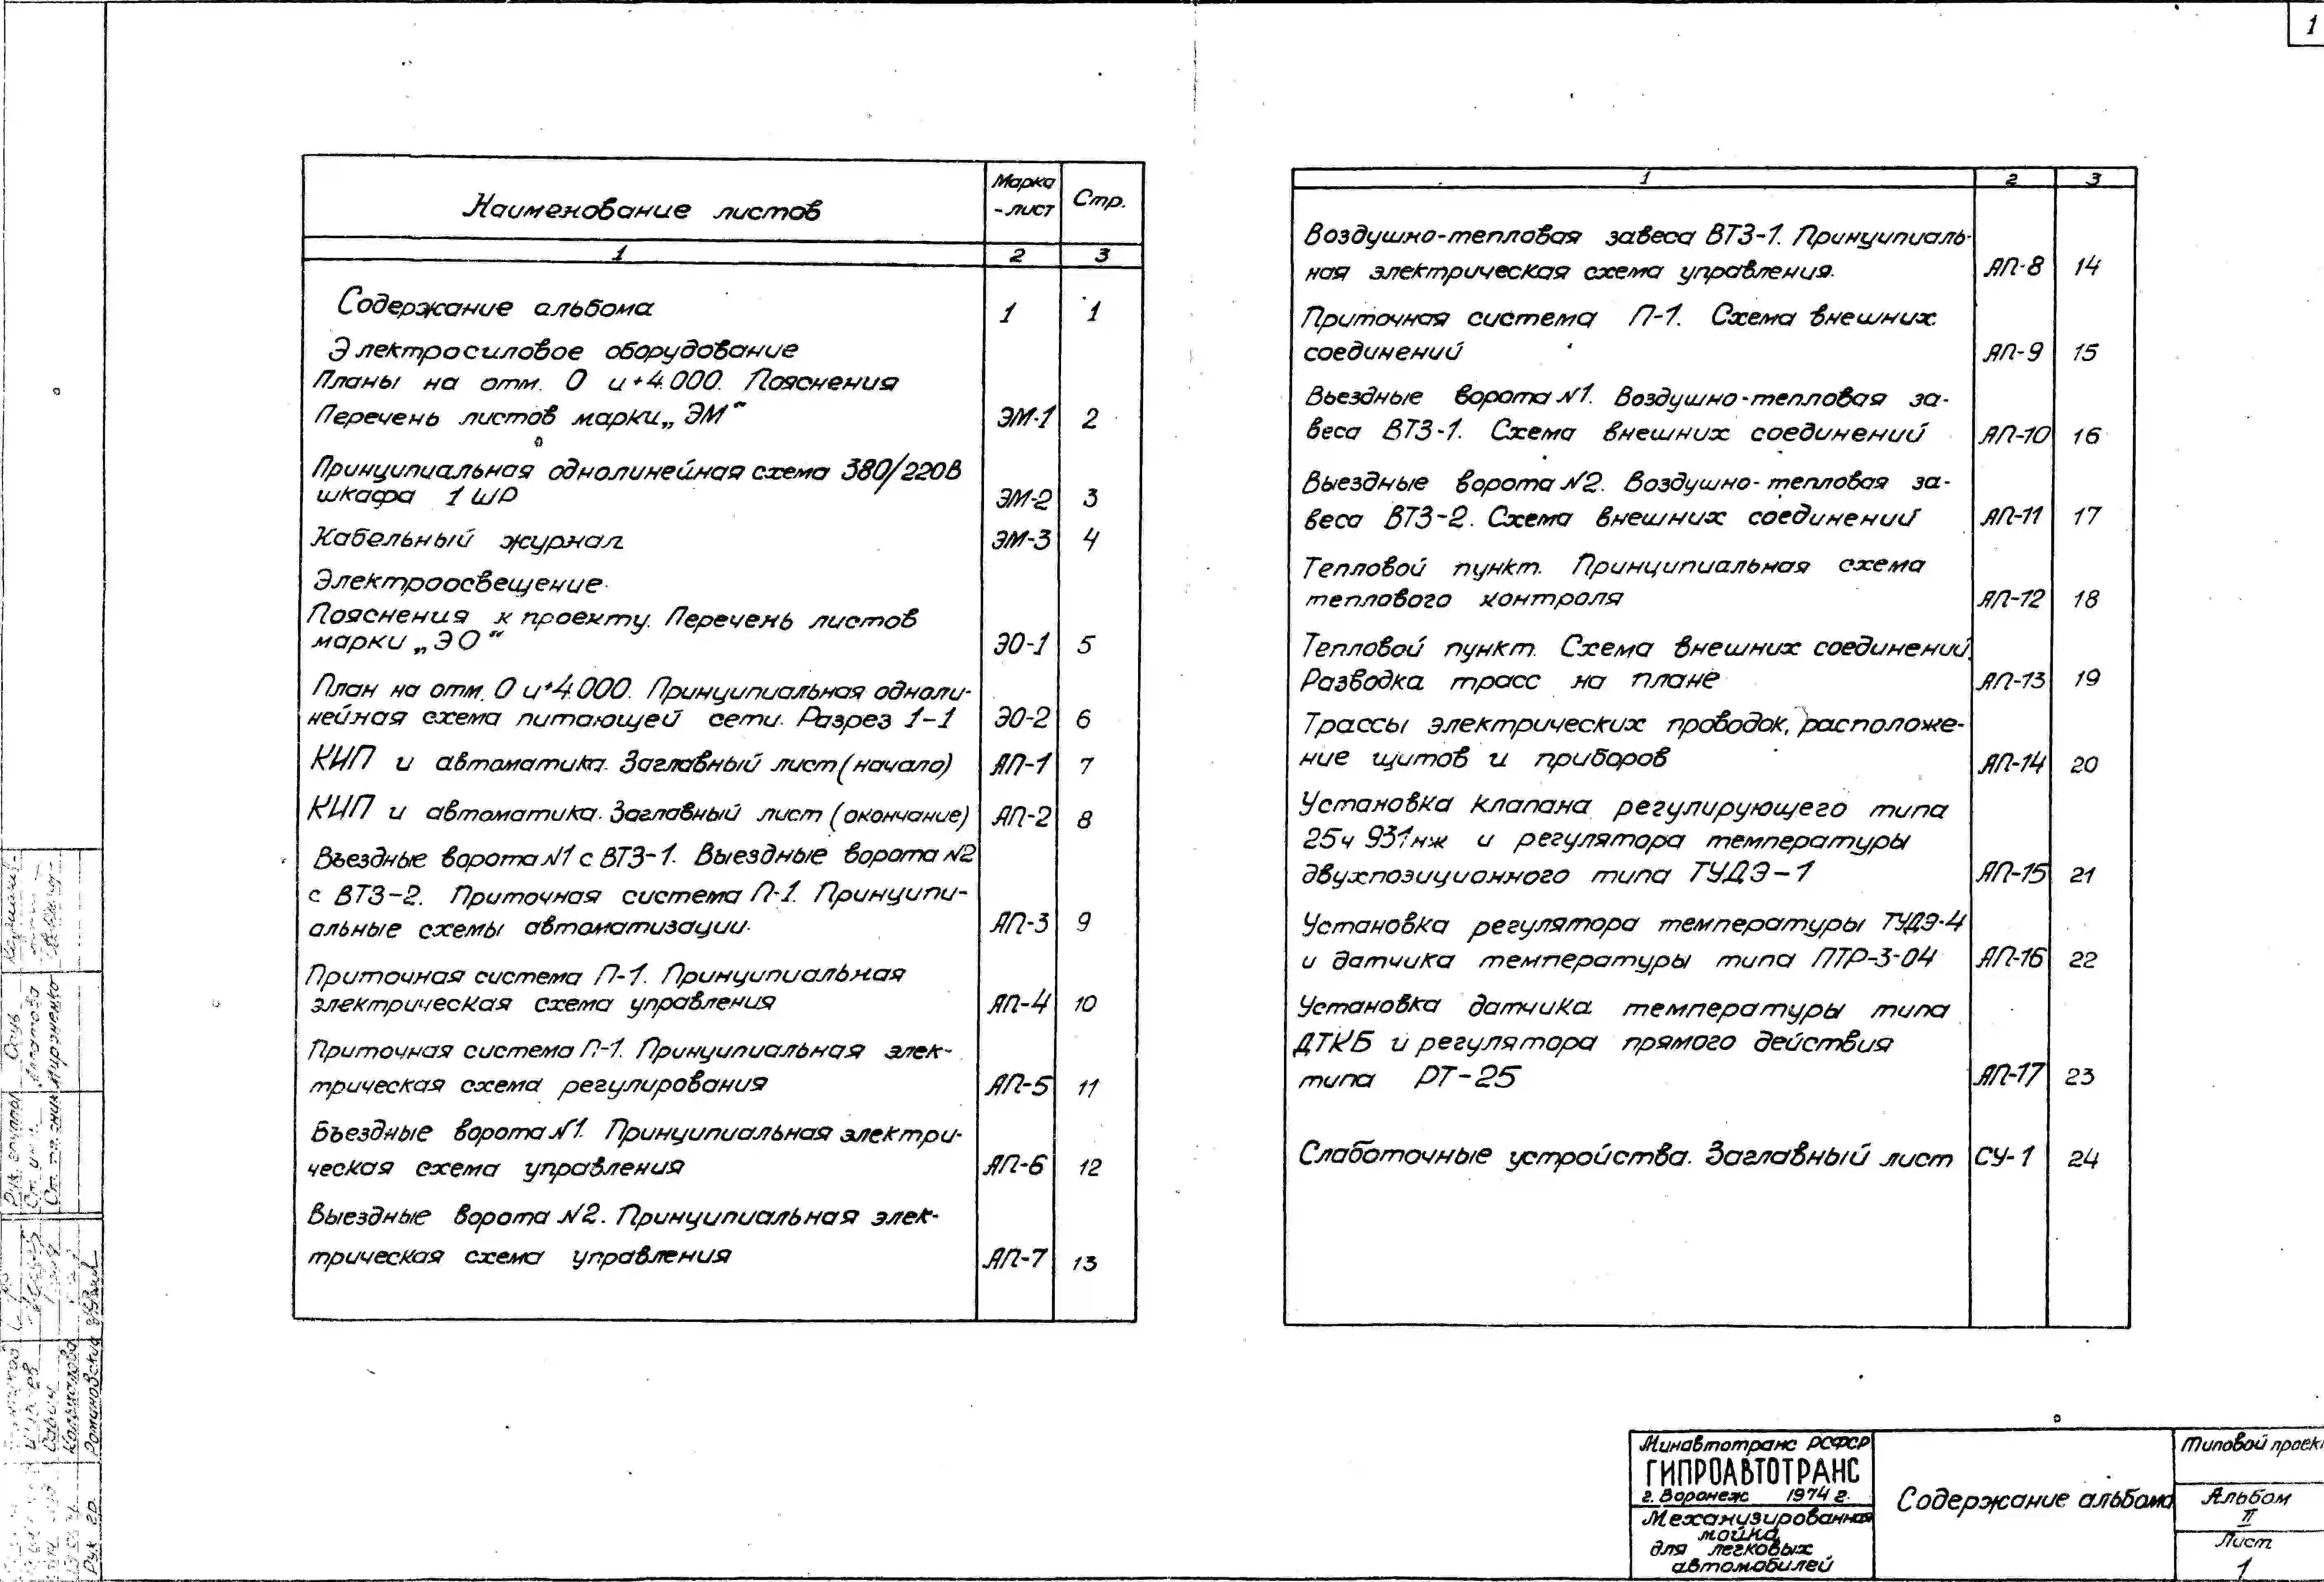 1
Наименование листов
Марка
-лист
Стр.
1 2 3
Содержание альбома 1 1
Электросиловое оборудование
Планы на отм. 0 и +4.000. Пояснения
Перечень листов марки „ЭМ“ ЭМ-1 2
Принципиальная однолинейная схема 380/220В
шкафа 1ШР ЭМ-2 3
Кабельный журнал ЭМ-3 4
Электроосвещение.
Пояснения к проекту. Перечень листов
марки „ЭО“ ЭО-1 5
План на отм. 0 и +4.000. Принципиальная одноли-
нейная схема питающей сети. Разрез 1-1 ЭО-2 6
КИП и автоматика. Заглавный лист (начало) АП-1 7
КИП и автоматика. Заглавный лист (окончание) АП-2 8
Въездные ворота №1 с ВТЗ-1. Выездные ворота №2
с ВТЗ-2. Приточная система П-1. Принципи-
альные схемы автоматизации. АП-3 9
Приточная система П-1. Принципиальная
электрическая схема управления АП-4 10
Приточная система П-1. Принципиальная элек-
трическая схема регулирования АП-5 11
Въездные ворота №1. Принципиальная электри-
ческая схема управления АП-6 12
Выездные ворота №2. Принципиальная элек-
трическая схема управления АП-7 13
1 2 3
Воздушно-тепловая завеса ВТЗ-1. Принципиаль-
ная электрическая схема управления. АП-8 14
Приточная система П-1. Схема внешних
соединений АП-9 15
Въездные ворота №1. Воздушно-тепловая за-
веса ВТЗ-1. Схема внешних соединений АП-10 16
Выездные ворота №2. Воздушно-тепловая за-
веса ВТЗ-2. Схема внешних соединений АП-11 17
Тепловой пункт. Принципиальная схема
теплового контроля АП-12 18
Тепловой пункт. Схема внешних соединений.
Разводка трасс на плане АП-13 19
Трассы электрических проводок, расположе-
ние щитов и приборов АП-14 20
Установка клапана регулирующего типа
25ч 931нж и регулятора температуры
двухпозиционного типа ТУДЭ-1 АП-15 21
Установка регулятора температуры ТУДЭ-4
и датчика температуры типа ПТР-3-04 АП-16 22
Установка датчика температуры типа
ДТКБ и регулятора прямого действия
типа РТ-25 АП-17 23
Слаботочные устройства. Заглавный лист СУ-1 24
Минавтотранс РСФСР
ГИПРОАВТОТРАНС
г. Воронеж 1974 г.
Механизированная
мойка
для легковых
автомобилей
Содержание альбома
Типовой проек
Альбом
II
Лист
1
Рук. группы
Ст. инж. Мироненко
Колыхалова
Рук. гр. Романовский